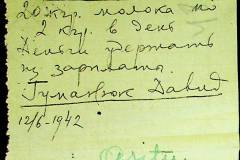 20 кгр. молока по
2 кгр. в день
Деньги удержать
из зарплаты.
Давид
12/6-1942